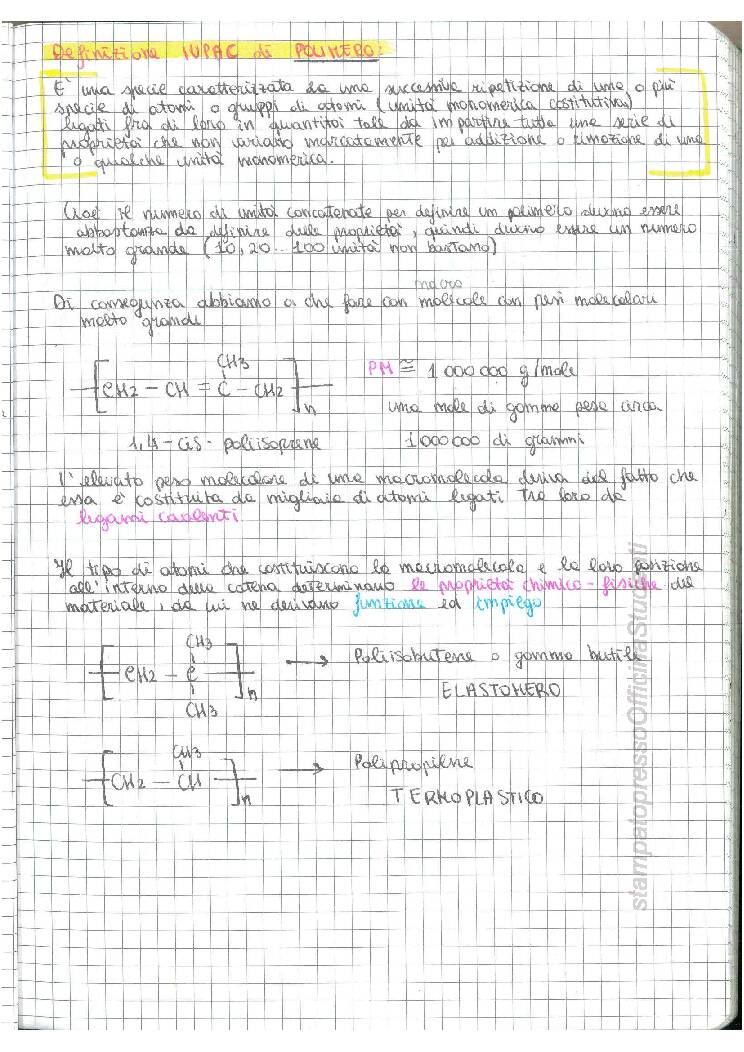 Definizione IUPAC di POLIMERO:
È una specie caratterizzata da una successiva ripetizione di una o più
specie di atomi o gruppi di atomi (unità monomerica costitutiva)
legati fra di loro in quantità tale da impartire tutta una serie di
proprietà che non variano marcatamente per addizione o rimozione di una
o qualche unità monomerica.
Cioè il numero di unità concatenate per definire un polimero devono essere
abbastanza da definire delle proprietà, quindi devono essere un numero
molto grande (10, 20... 100 unità non bastano)
macro
Di conseguenza abbiamo a che fare con molecole con pesi molecolari
molto grandi
CH3
[CH2 - CH = C - CH2]n
PM ≅ 1 000 000 g/mole
una mole di gomma pesa circa
1,4-cis-poliisoprene
1000000 di grammi
L'elevato peso molecolare di una macromolecola deriva dal fatto che
essa è costituita da migliaia di atomi legati tra loro da
legami covalenti
Il tipo di atomi che costituiscono la macromolecola e la loro posizione
all'interno della catena determinano le proprietà chimico-fisiche del
materiale, da cui ne derivano funzione ed impiego
CH3
[CH2 - C]n → Poliisobutene o gomma butile
CH3
ELASTOMERO
CH3
[CH2 - CH]n → Polipropilene
TERMOPLASTICO
stampatopressoOfficinaStudenti